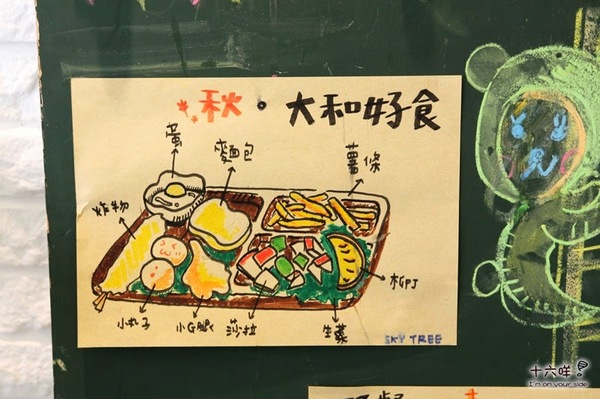 秋。大和好食
蛋
麵包
薯條
炸物
柳丁
小丸子
小G腿
莎拉
生菜
SKY TREE
十六咩
I'm on your side